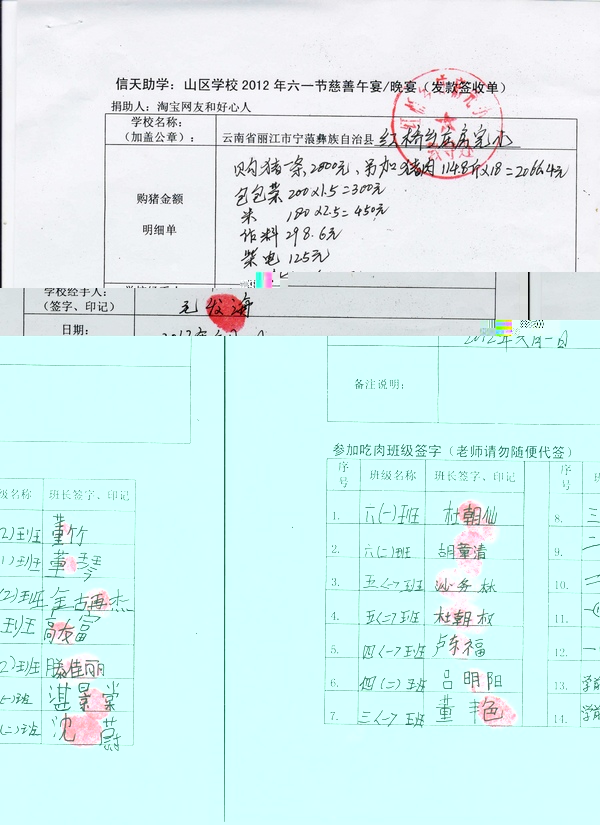 信天助学：山区学校2012年六一节慈善午宴/晚宴（发款签收单）
捐助人：淘宝网友和好心人
学校名称：
（加盖公章）：
云南省丽江市宁蒗彝族自治县 红桥乡庄房完小
购猪金额
明细单
购猪一条2000元、另加猪肉114.8斤×18=2066.4元
包包菜 200×1.5=300元
米 180×2.5=450元
作料 298.6元
柴电 125元
学校经手人：
（签字、印记）
毛发海
日期：
2012年六月一日
备注说明：
参加吃肉班级签字（老师请勿随便代签）
序号 班级名称 班长签字、印记 序号
1. 六(一)班 杜朝仙 8. 三
2. 六(二)班 胡董清 9. 二
3. 五(一)班 务林 10. 二
4. 五(二)班 杜朝权 11. 一
5. 四(一)班 卢东福 12. 一
6. 四(二)班 吕明阳 13. 学前
7. 三(一)班 董丰色 14. 学前
级名称 班长签字、印记
(2)班 董竹
1)班 董琴
(2)班 金古再杰
班 高友富
2)班 滕佳丽
(一)班 湛景棠
(二)班 沈蔚